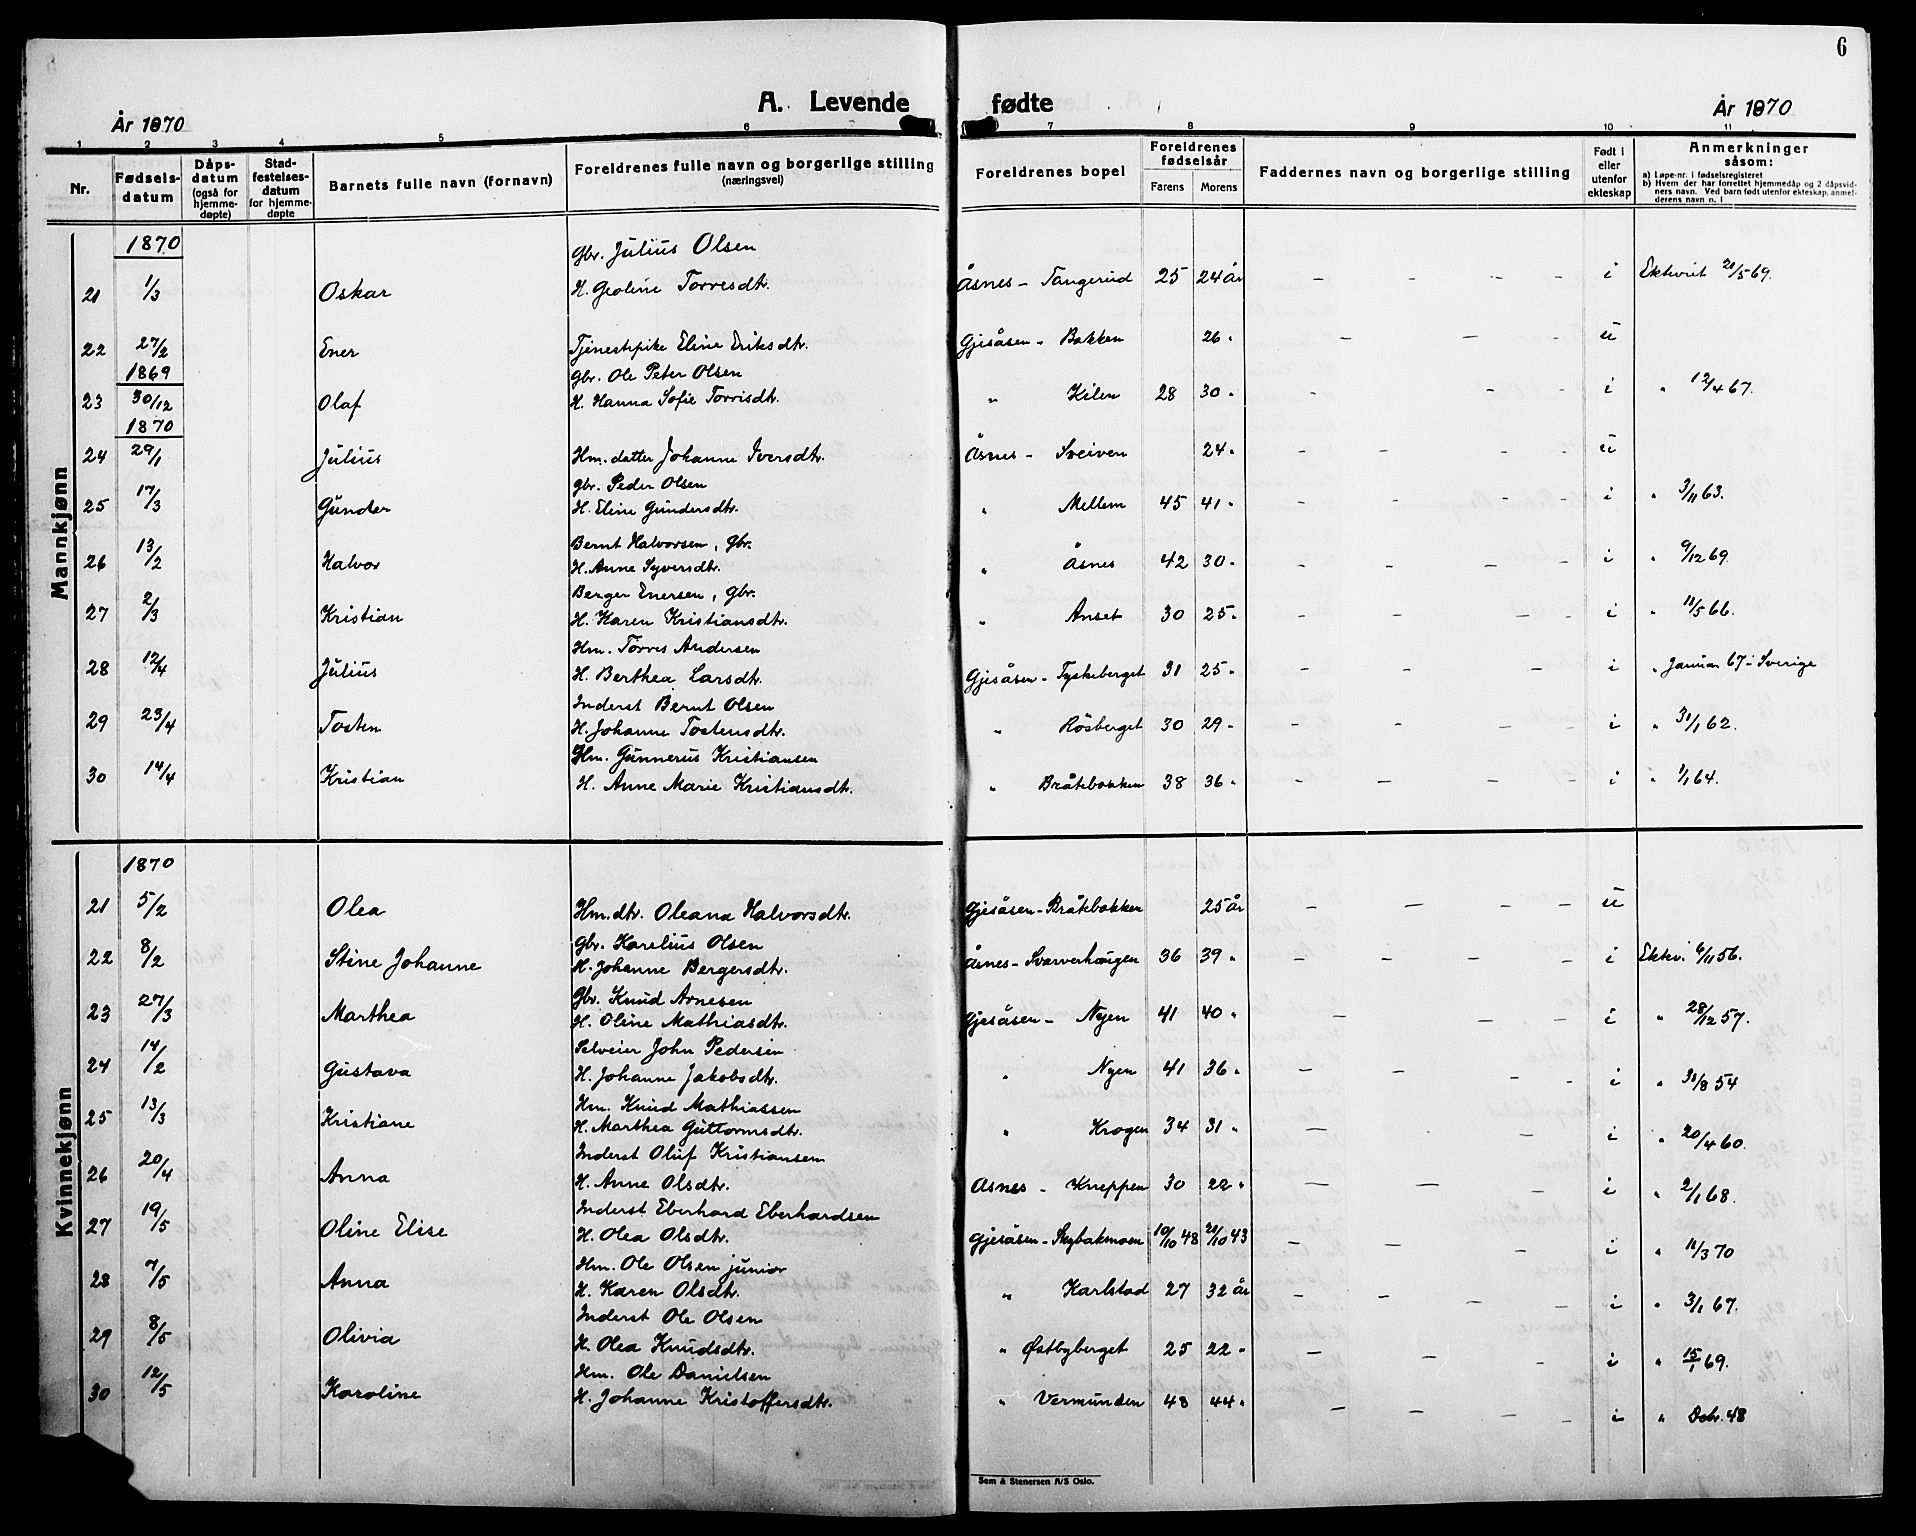 6
A. Levende fødte
År 1870
År 1870
1 2 3 4 5 6 7 8 9 10 11
Nr.
Fødselsdatum
Dåpsdatum (også for hjemmedøpte)
Stadfestelsesdatum for hjemmedøpte
Barnets fulle navn (fornavn)
Foreldrenes fulle navn og borgerlige stilling (næringsvei)
Foreldrenes bopel
Foreldrenes fødselsår
Farens Morens
Faddernes navn og borgerlige stilling
Født i eller utenfor ekteskap
Anmerkninger såsom:
a) Løpe-nr. i fødselsregisteret
b) Hvem der har forrettet hjemmedåp og 2 dåpsvidners navn. Ved barn født utenfor ekteskap, anmelderens navn n. 1
Mannkjønn
1870 Gbr. Julius Olsen
21 1/3 Oskar H. Geoline Torresdtr. Åsnes - Tangerud 25 24 år - - - i Ektevit 21/5 69.
22 27/2 Ener Tjenestepike Eline Eriksdtr. Gjesåsen - Bakken 26 " - - - u
1869 Gbr. Ole Peter Olsen
23 30/12 Olaf H. Hanna Sofie Torrisdtr. " Kilen 28 30 " - - - i " 12/4 67.
1870
24 29/1 Julius Hm. datter Johanne Iversdtr. Åsnes - Sveiven 24 " - - - u
Gbr. Peder Olsen
25 17/3 Gunder H. Eline Gundersdtr. " Mellem 45 41 " - - - i " 3/11 63.
Bernt Halvorsen, Gbr.
26 13/2 Halvor H. Anne Syversdtr. " Åsnes 42 30 " - - - i " 9/12 69.
Berger Enersen, Gbr.
27 2/3 Kristian H. Karen Kristiansdtr. " Anset 30 25 " - - - i " 11/5 66.
Hm. Torres Andersen
28 12/4 Julius H. Berthea Larsdtr. Gjesåsen - Tyskeberget 31 25 " - - - i " Januar 67 i Sverige
Inderst Bernt Olsen
29 23/4 Tosten H. Johanne Tostensdtr. " Rösberget 30 29 " - - - i " 31/1 62.
Hm. Gunnerus Kristiansen
30 14/4 Kristian H. Anne Marie Kristiansdtr. " Bråtebakken 38 36 " - - - i " 1/1 64.
Kvinnekjønn
1870
21 5/2 Olea Hm. dtr. Oleana Halvorsdtr. Gjesåsen - Bråtebakken 25 år - - - u
Gbr. Karelius Olsen
22 8/2 Stine Johanne H. Johanne Bergersdtr. Åsnes - Svarverhaugen 36 39 " - - - i Ektev. 6/11 56.
Gbr. Knud Arnesen
23 27/3 Marthea H. Oline Mathiasdtr. Gjesåsen - Nyen 41 40 " - - - i " 28/12 57.
Selveier John Pedersen
24 14/2 Gustava H. Johanne Jakobsdtr. " Nyen 41 36 " - - - i " 31/8 54
Hm. Knud Mathiassen
25 13/3 Kristiane H. Marthea Guttormsdtr. " Krogen 34 31 " - - - i " 20/4 60.
Inderst Oluf Kristiansen
26 20/4 Anna H. Anne Olsdtr. Åsnes - Kneppen 30 22 " - - - i " 2/1 68.
Inderst Eberhard Eberhardsen
27 19/5 Oline Elise H. Olea Olsdtr. Gjesåsen - Skybakmoen 10/10 48 21/10 43 - - - i " 11/3 70
Hm. Ole Olsen junior
28 7/5 Anna H. Karen Olsdtr. " Karlstad 27 32 år - - - i " 3/1 67.
Inderst Ole Olsen
29 8/5 Olivia H. Olea Knudsdtr. " Østbyberget 25 22 " - - - i " 15/1 69.
Hm. Ole Danielsen
30 12/5 Karoline H. Johanne Kristoffersdtr. " Vermunden 48 44 " - - - i " Debr. 48
Sem & Stenersen A/S Oslo.